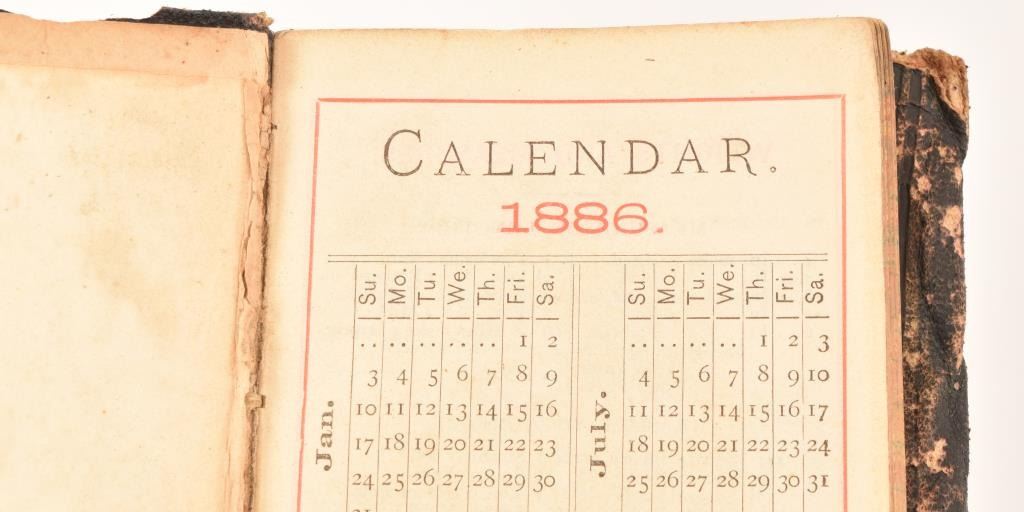 CALENDAR.
1886.
Su. Mo. Tu. We. Th. Fri. Sa. Su. Mo. Tu. We. Th. Fri. Sa.
.. .. .. .. .. 1 2 .. .. .. .. 1 2 3
3 4 5 6 7 8 9 4 5 6 7 8 9 10
Jan. 10 11 12 13 14 15 16 July. 11 12 13 14 15 16 17
17 18 19 20 21 22 23 18 19 20 21 22 23 24
24 25 26 27 28 29 30 25 26 27 28 29 30 31